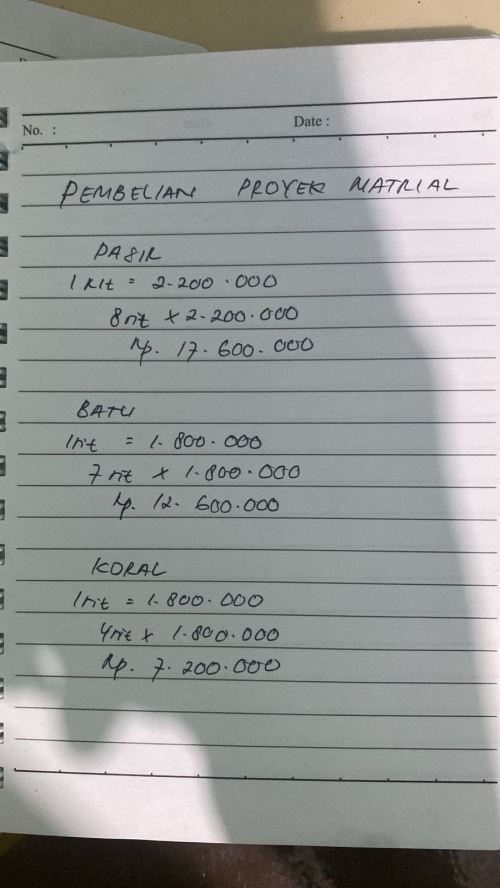 No. :
Date :
PEMBELIAN PROYEK MATRIAL
PASIR
1 Rit = 2.200.000
8 rit x 2.200.000
Rp. 17.600.000
BATU
1 rit = 1.800.000
7 rit x 1.800.000
Rp. 12.600.000
KORAL
1 rit = 1.800.000
4 rit x 1.800.000
Rp. 7.200.000